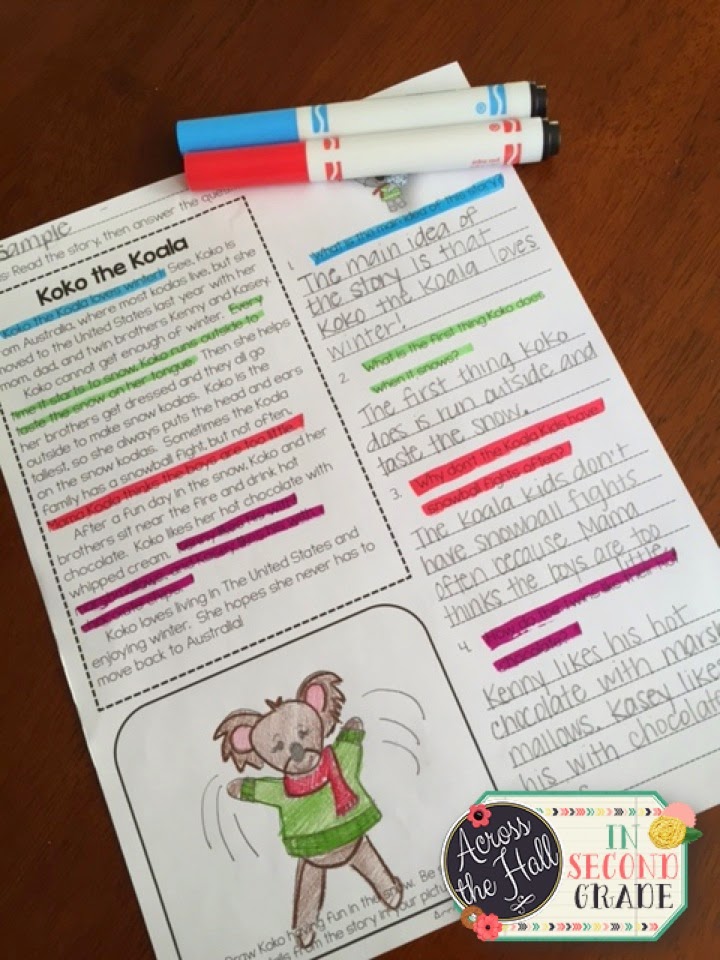 Sample
Read the story, then answer the
Koko the Koala
Koko the Koala loves winter! See, Koko is
from Australia, where most koalas live, but she
moved to the United States last year with her
mom, dad, and twin brothers Kenny and Kasey.
Koko cannot get enough of winter. Every
time it starts to snow, Koko runs outside to
taste the snow on her tongue. Then she helps
her brothers get dressed and they all go
outside to make snow koalas. Koko is the
tallest, so she always puts the head and ears
on the snow koalas. Sometimes the Koala
family has a snowball fight, but not often.
Mama Koala thinks the boys are too little.
After a fun day in the snow, Koko and her
brothers sit near the fire and drink hot
chocolate. Koko likes her hot chocolate with
whipped cream.
Koko loves living in The United States and
enjoying winter. She hopes she never has to
move back to Australia!
Draw Koko having fun in the snow. Be
from the story in your
1. What is the main idea of this story?
The main idea of
the story is that
Koko the Koala loves
winter!
2. What is the first thing Koko does
when it snows?
The first thing Koko
does is run outside and
taste the snow.
3. Why don't the Koala kids have
snowball fights often?
The koala kids don't
have snowball fights
often because Mama
thinks the boys are too
little.
4.
Kenny likes his hot
chocolate with marsh
mallows. Kasey likes
his with chocolate
Across
the Hall
IN
SECOND
GRADE